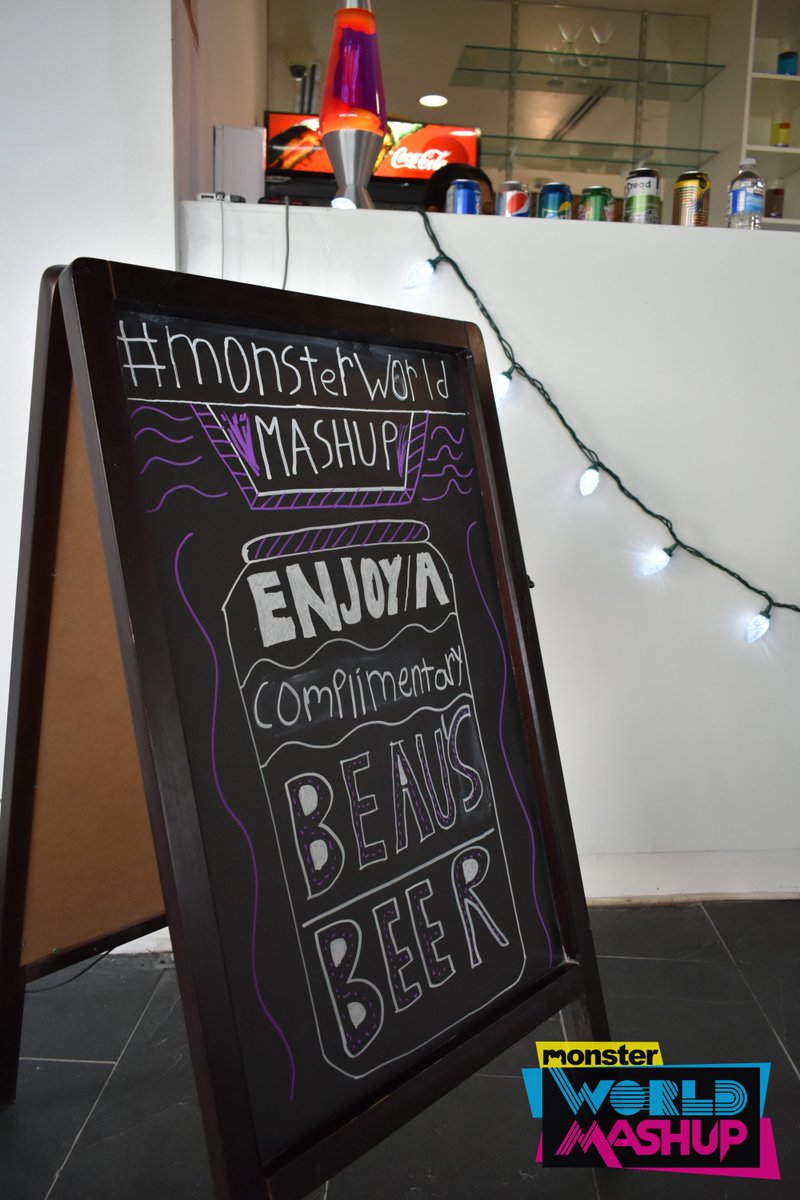 Coca-Cola
#monsterworld
MASHUP
ENJOY/A
complimentary
BEAU'S
BEER
monster
WORLD
MASHUP